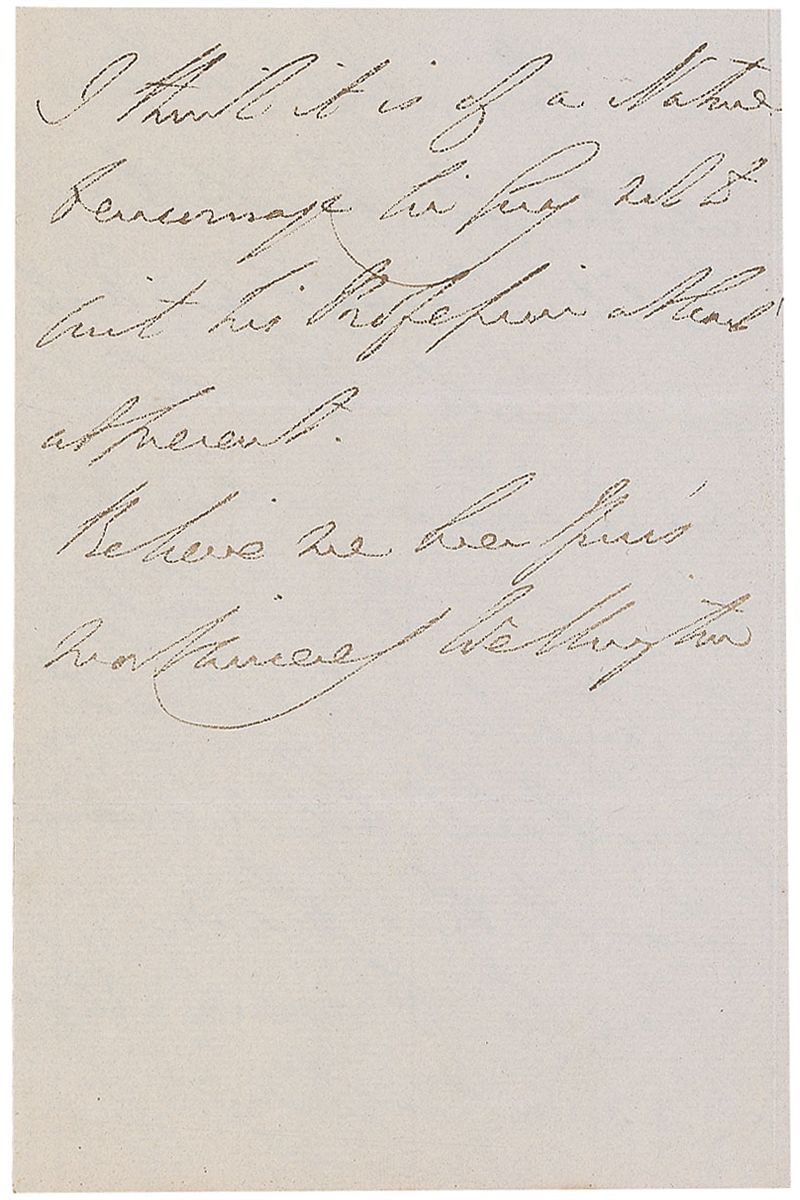 I think it is of a Nature
to encourage him not to
quit his Profession at least
at present.
Believe me Ever Yours
most sincerely Wellington